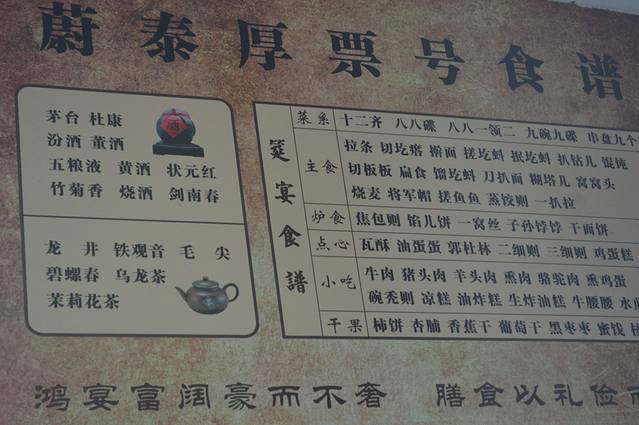 蔚泰厚票号食谱
茅台 杜康
汾酒 董酒
五粮液 黄酒 状元红
竹菊香 烧酒 剑南春
酒
龙 井 铁观音 毛 尖
碧螺春 乌龙茶
茉莉花茶
筵宴食谱
菜系 十二齐 八八碟 八八一领二 九碗九碟 串盘九个
主食
拉条 切圪瘩 擀面 搓圪蚪 抿圪蚪 扒钴儿 馄饨
切板板 扁食 馏圪蚪 刀扒面 糊塔儿 窝窝头
烧麦 将军帽 搓鱼鱼 蒸饺则 一扒拉
炉食 焦包则 馅儿饼 一窝丝 子孙饽饽 干面饼
点心 瓦酥 油蛋蛋 郭杜林 二细则 三细则 鸡蛋糕
小吃
牛肉 猪头肉 羊头肉 熏肉 骆驼肉 熏鸡蛋
碗秃则 凉糕 油炸糕 生炸油糕 牛腰腰
干果 柿饼 杏脯 香蕉干 葡萄干 黑枣枣 蜜饯
鸿宴富阔豪而不奢 膳食以礼俭而